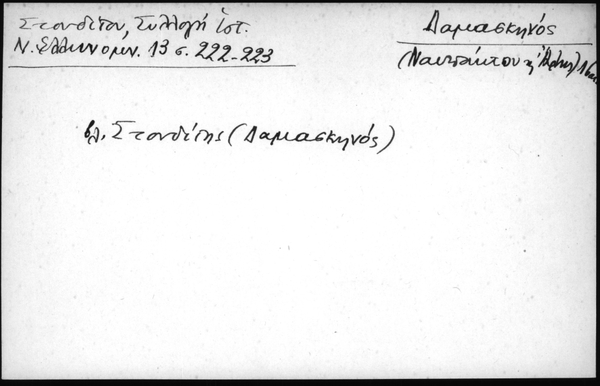 Στουδίτου, Συλλογή ἱστ.
Ν. Ἑλληνομν. 13 σ. 222-223
Δαμασκηνός
(Ναυπάκτου κ Ἄρτης)
βλ. Στουδίτης (Δαμασκηνός)